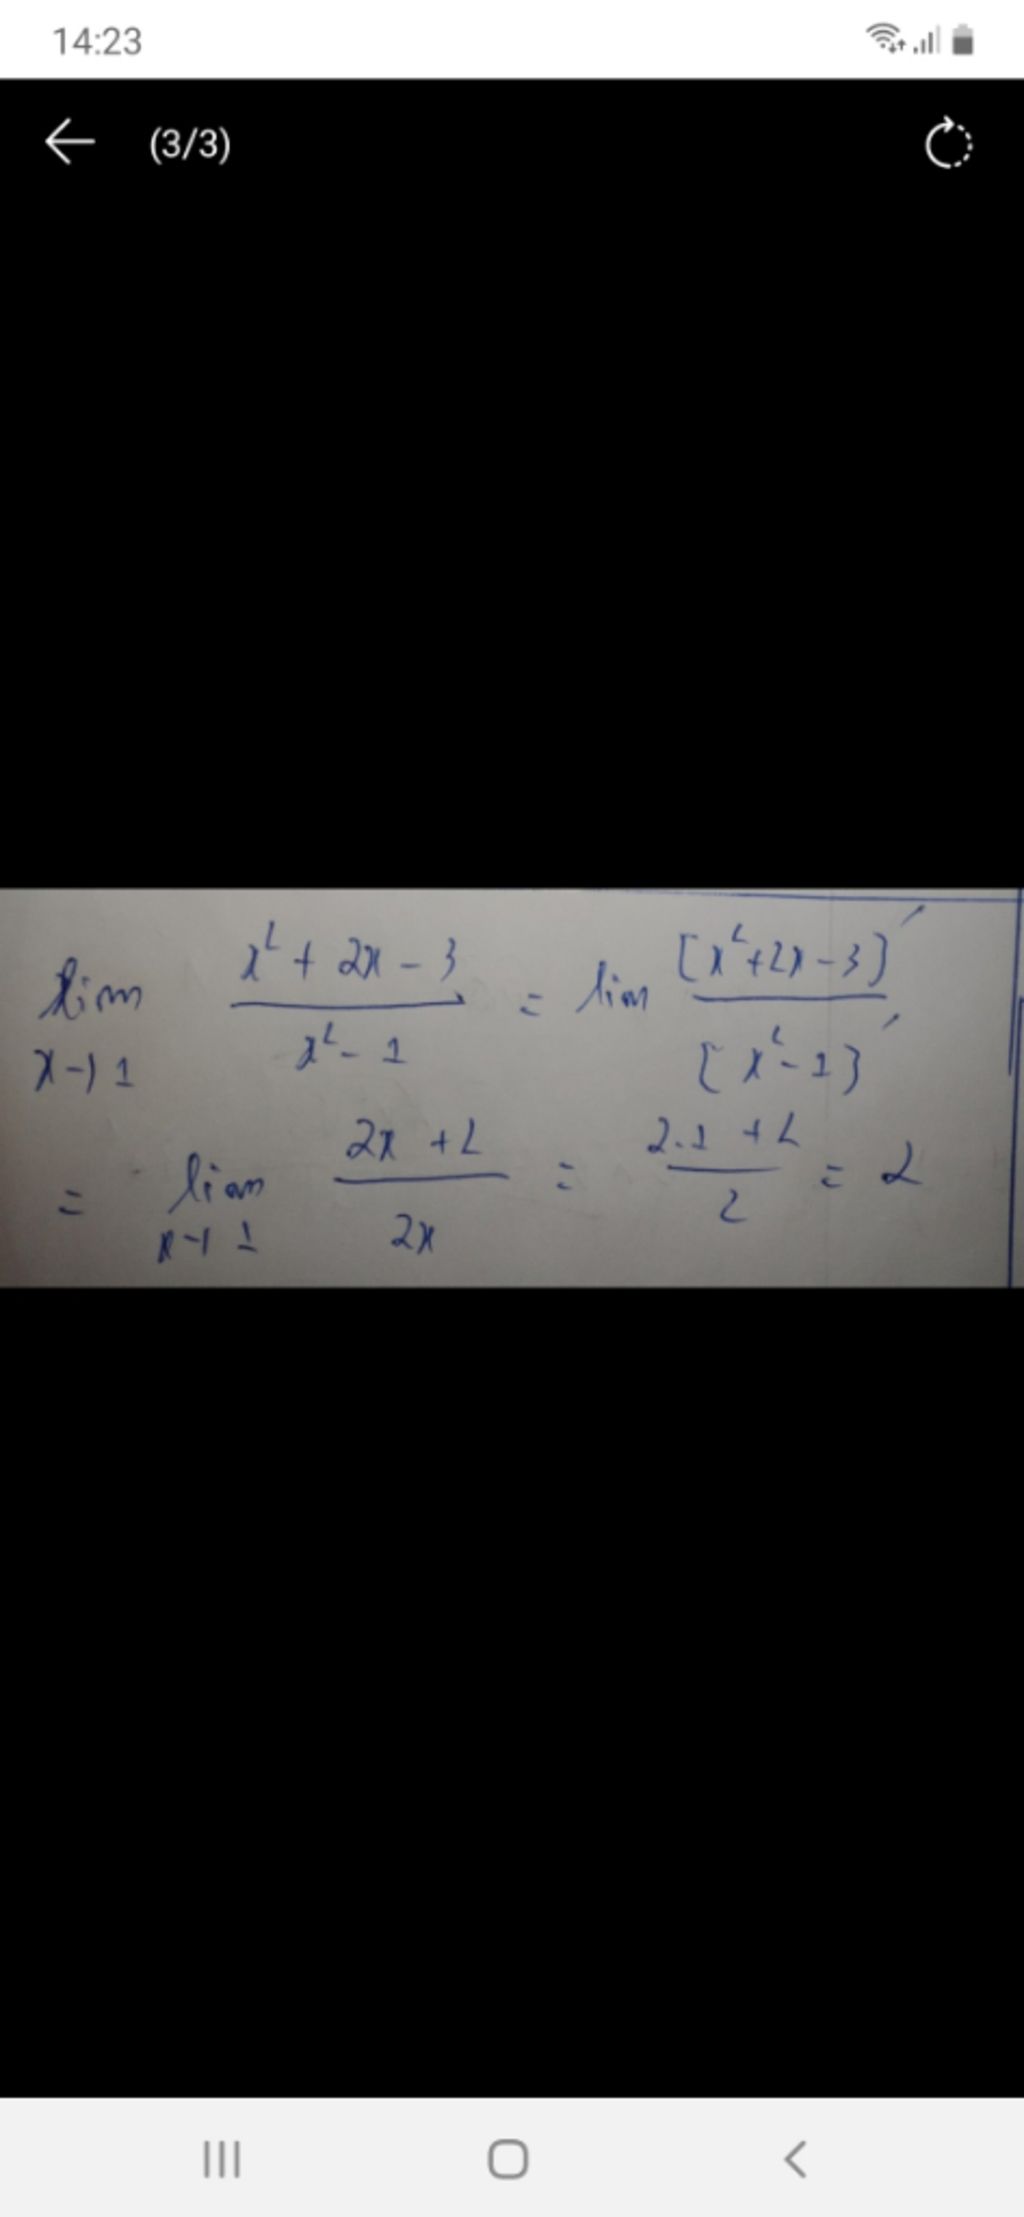 14:23
(3/3)
lim x² + 2x - 3 / x² - 1 = lim [x²+2x-3]' / [x²-1]'
x→1
= lim 2x + 2 / 2x = 2.1 + 2 / 2 = 2
x→1